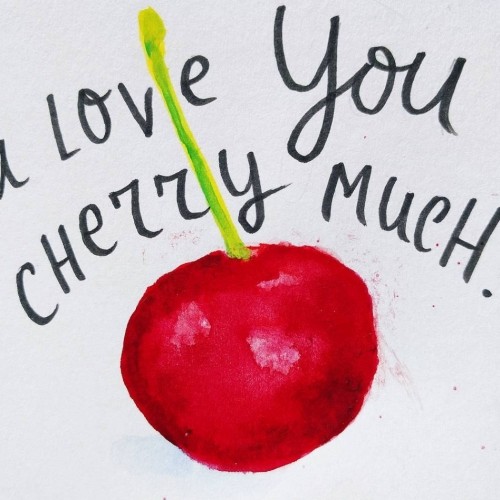 Love You
CHerry MucH.